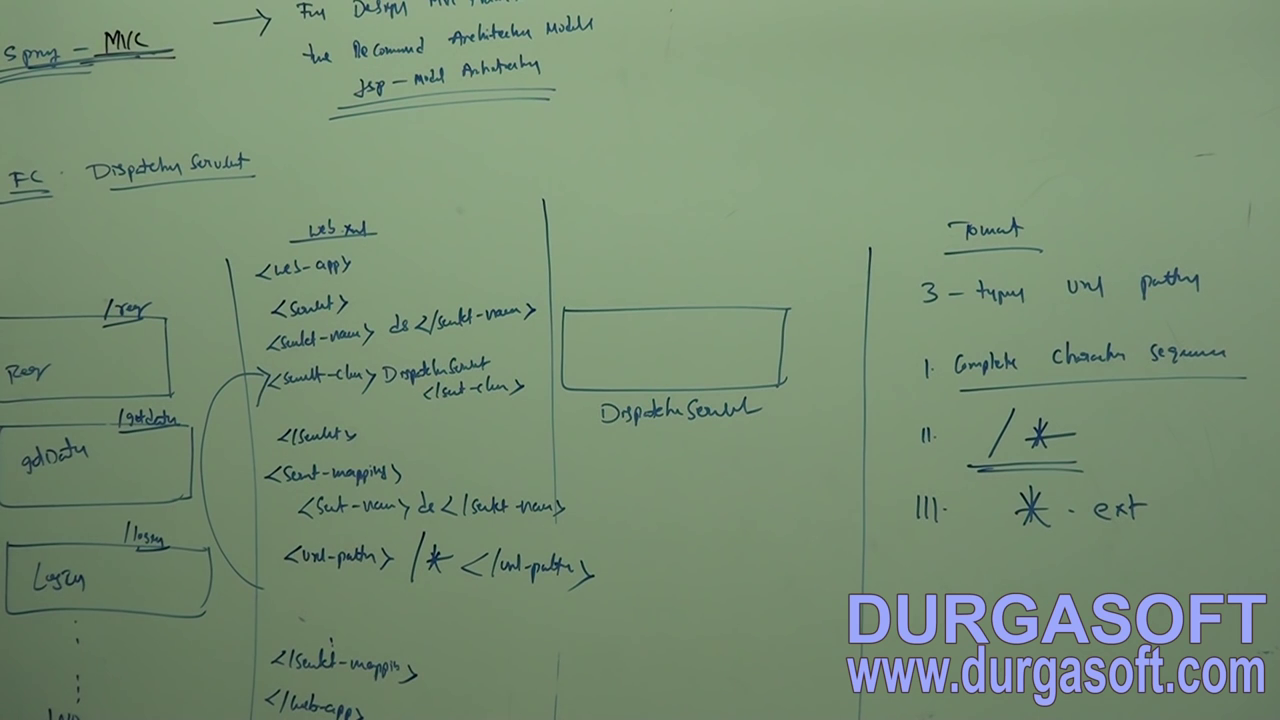 Spring - MVC
For Design MVC
the Recommend Architecture Models
Jsp - Model Architecture
FC. Dispatcher Servlet
web.xml
<web-app>
<servlet>
<servlet-name> ds </servlet-name>
<servlet-class> DispatcherServlet
</servlet-class>
</servlet>
<servlet-mapping>
<servlet-name> ds </servlet-name>
<url-pattern> /* </url-pattern>
</servlet-mapping>
</web-app>
/reg
Reg
/getdata
getData
/login
Login
DispatcherServlet
Tomcat
3 - types url patterns
I. Complete character sequence
II. /*
III. *.ext
DURGASOFT
www.durgasoft.com